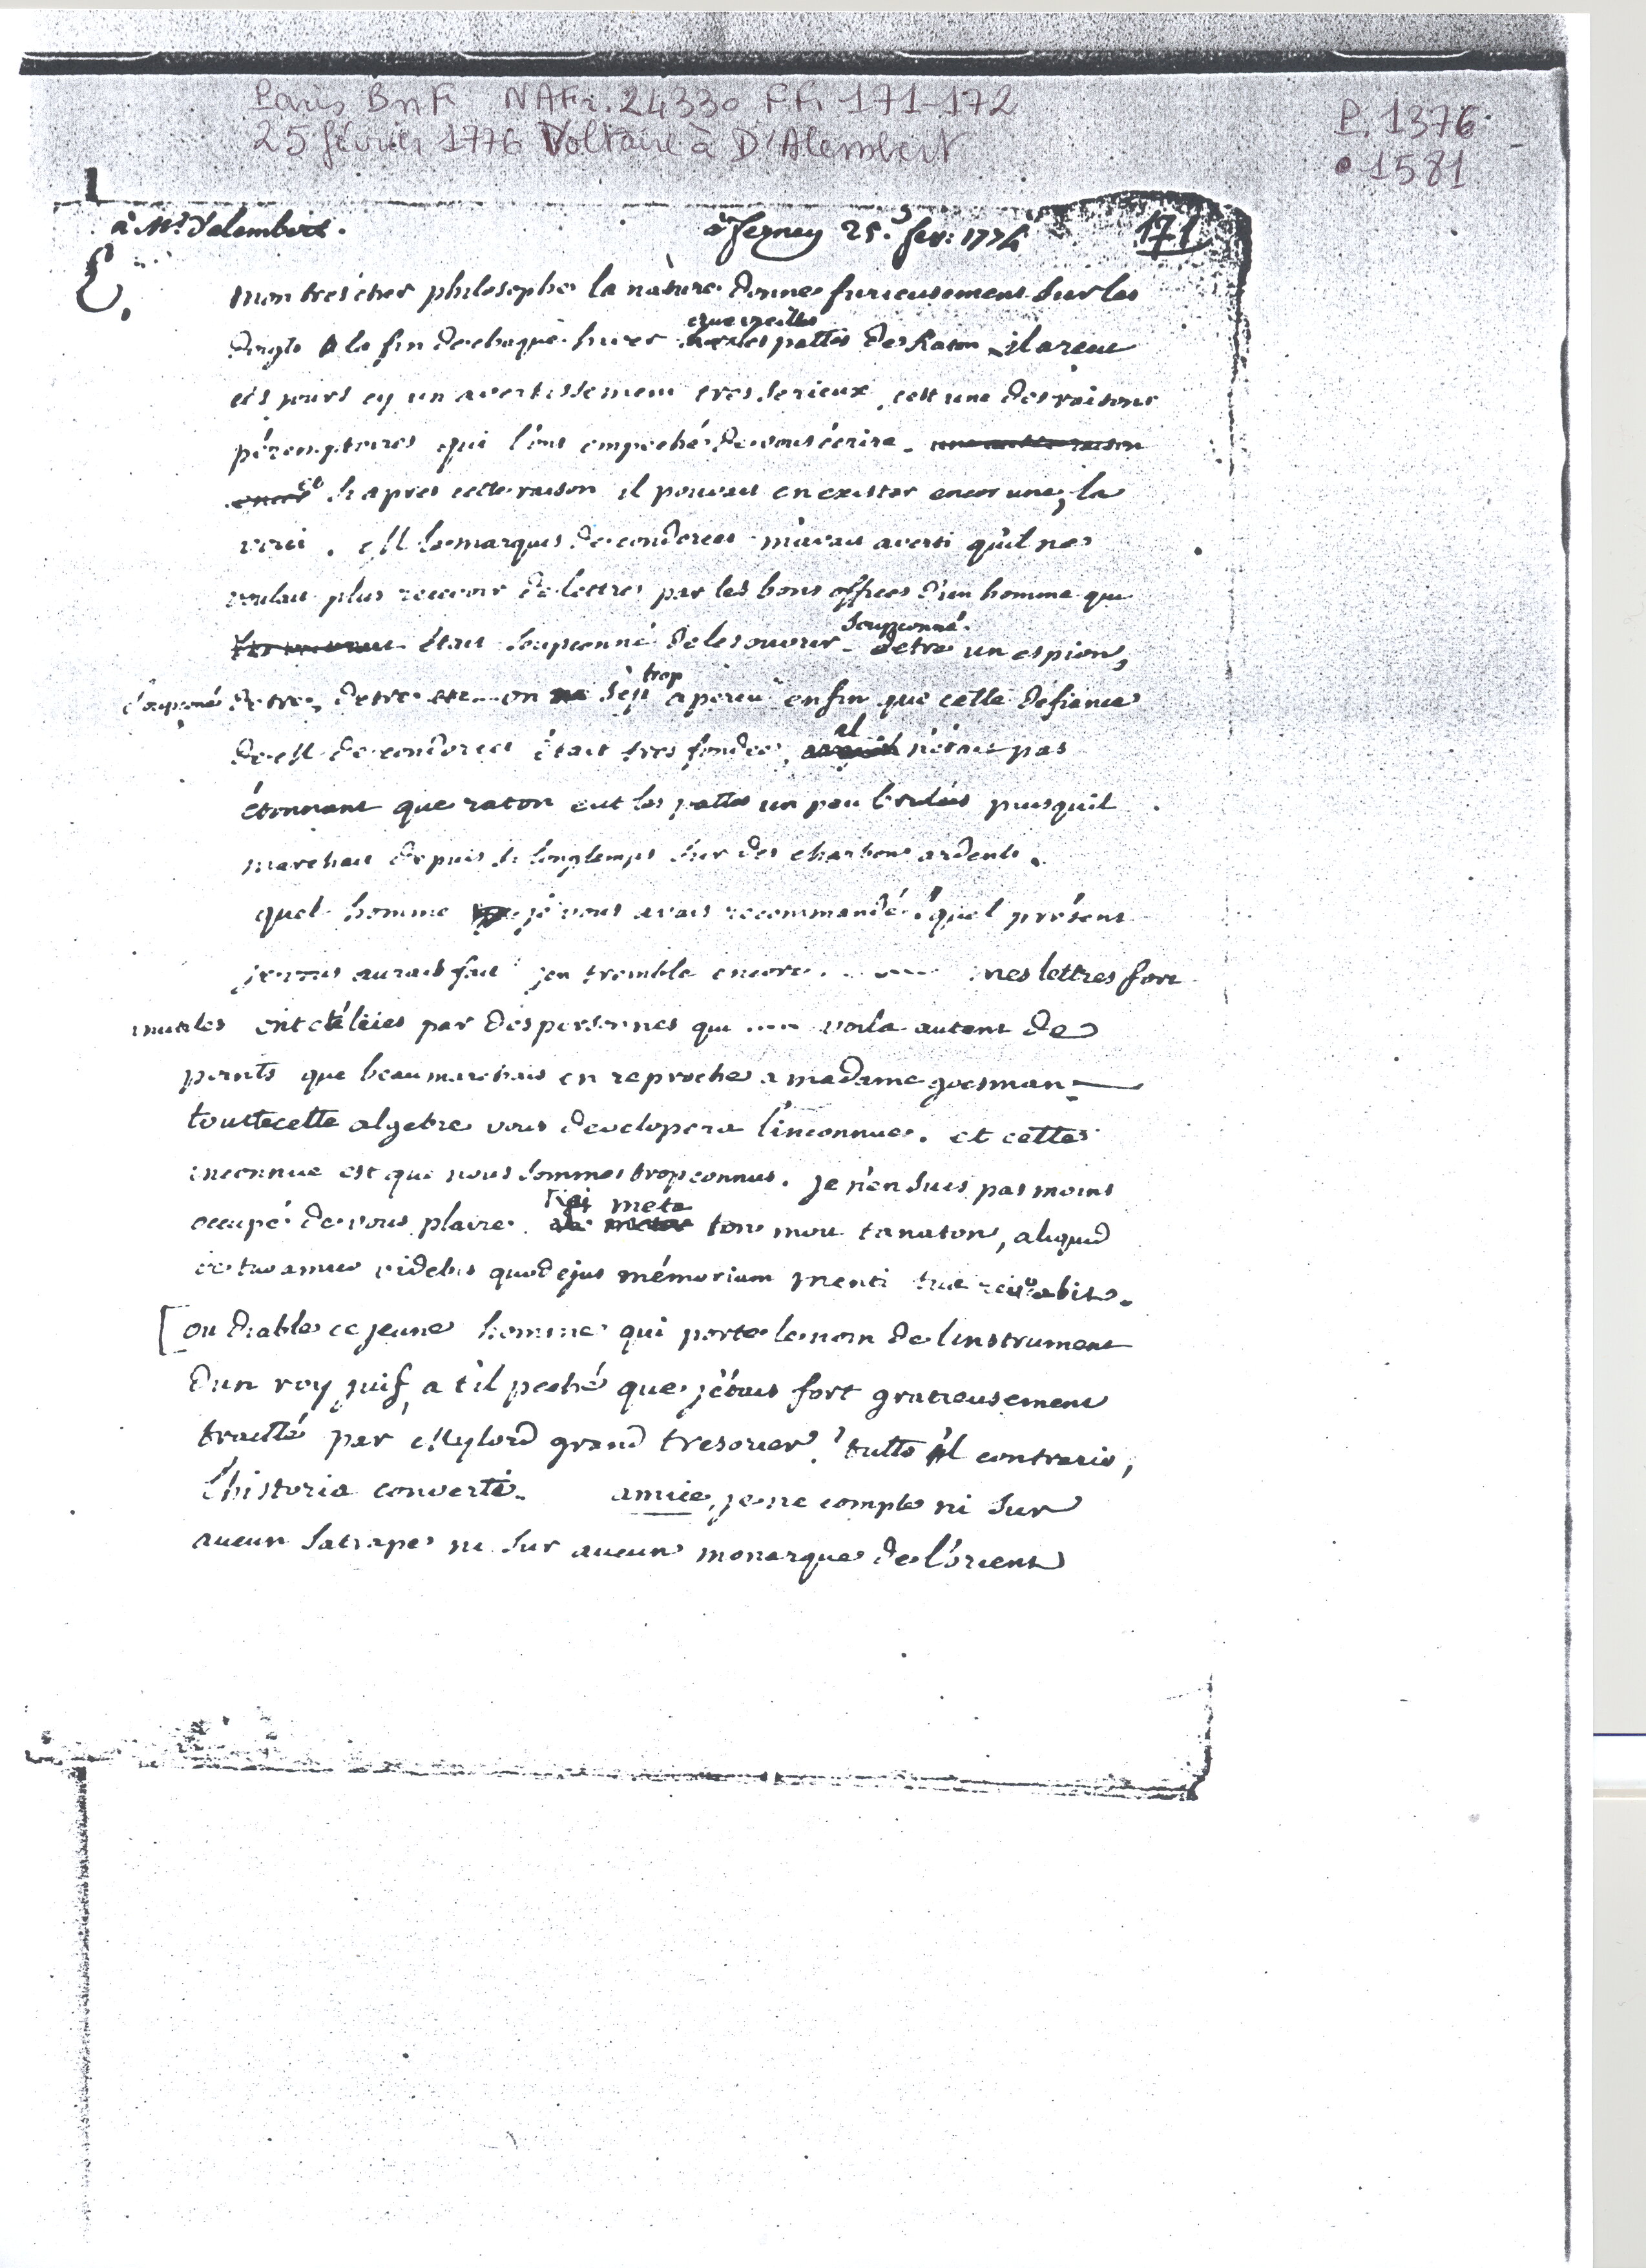 Paris BnF NAFr. 24330 FF. 171-172
25 février 1776 Voltaire à D'Alembert
P. 1376
1581
à Mr. Dalembert.
à ferney 25. fev: 1774
171
mon tres cher philosophe la nature donne furieusement sur les
doigts a la fin de chaque hiver aux vieilles pattes de Raton. il a reçu
ces jours cy un avertissement tres serieux. cest une des raisons
péremptoires qui l'ont empeché de vous écrire. une autre raison
encor et si apres cette raison il pouvait en exister encor une, la
voici. M le marquis de condorcet m'avait averti qu'il ne
voulait plus recevoir de lettres par les bons offices d'un homme qui
était soupconné de les ouvrir. soupçonné detre un espion,
soupçoné detre, detre on s'est trop aperçu enfin que cette defiance
de M de condorcet était tres fondée, il n'etait pas
étonnant que raton eut les pattes un peu brulées puisquil
marchait depuis si longtemps sur des charbons ardents.
quel homme je vous avais recommandé! quel présent
je vous aurais fait j'en tremble encore. .... mes lettres fort
inutiles ont été leües par des personnes qui .... voila autant de
points que beaumarchais en reproche a madame goesman
toutte cette algebre vous developera l'inconnue. et cette
inconnue est que nous sommes trop connus. je n'en suis pas moins
occupé de vous plaire. kai meta ton mou tanaton, aliquid
de tuo amico videbis quod ejus mémoriam menti tuæ revocabit.
[ou diable ce jeune homme qui porte le nom de linstrument
dun roy juif, a t'il peché que j'étais fort gratieusement
traitté par Mylord grand tresorier? tutto il contrario,
l'historia converti. amice, je ne compte ni sur
aucun satrape ni sur aucun monarque de l'orient